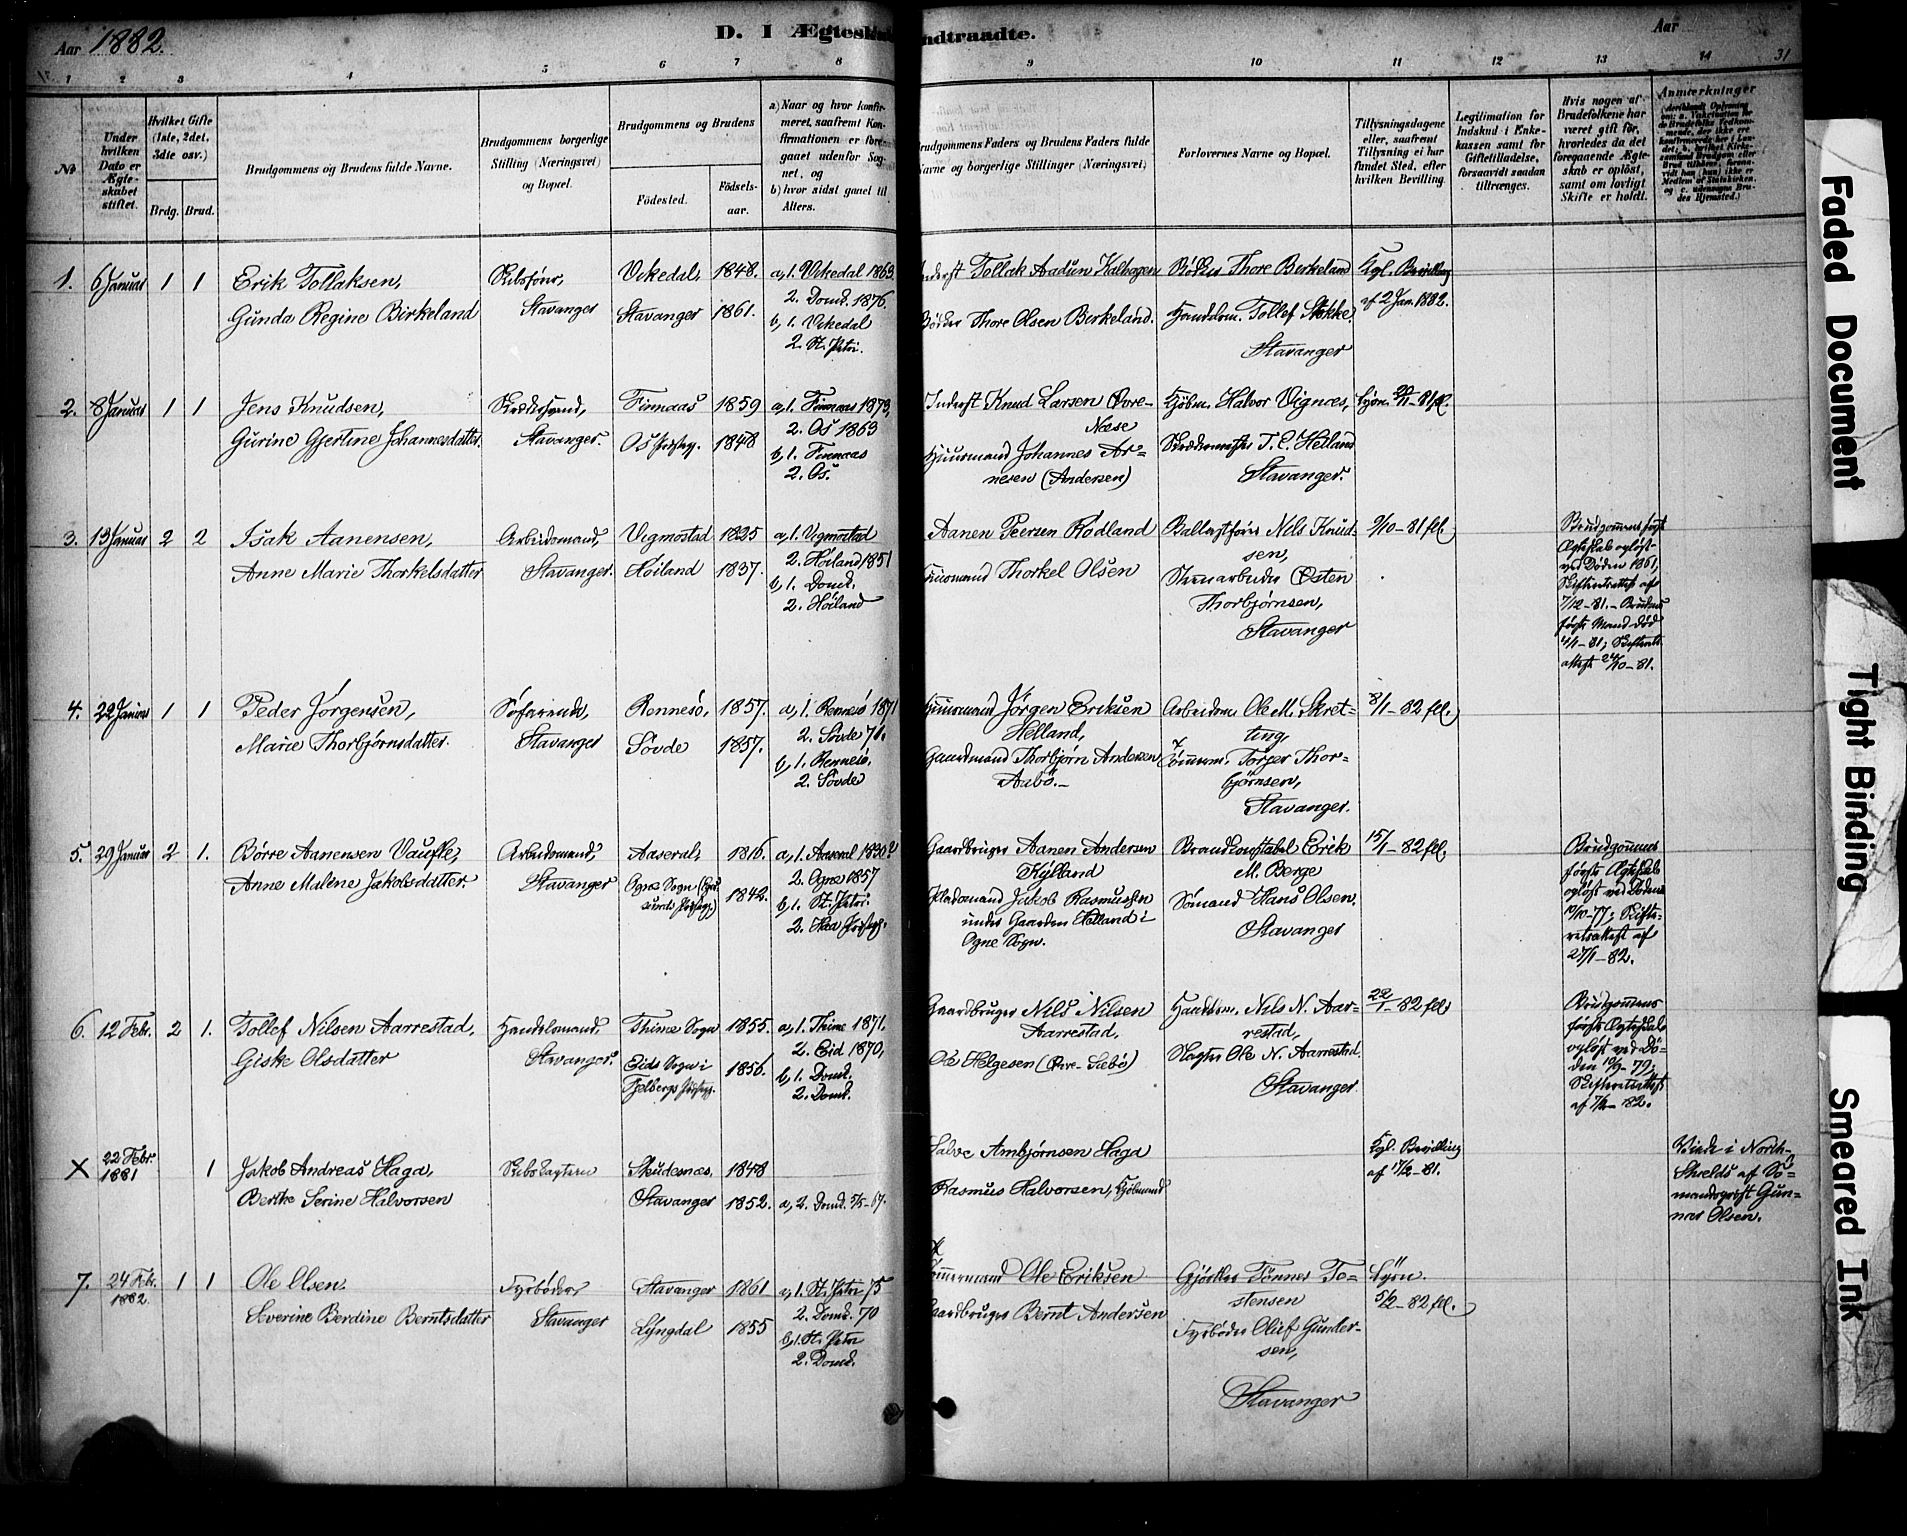 Aar 1882.
D. I Ægtesk
ndtraadte.
Aar
31
1 2 3 4 5 6 7 8 9 10 11 12 13 14
No
Under hvilken Dato er Ægteskabet stiftet.
Hvilket Gifte (1ste, 2det, 3die osv.)
Brdg. Brud.
Brudgommens og Brudens fulde Navne.
Brudgommens borgerlige Stilling (Næringsvei) og Bopæl.
Brudgommens og Brudens
Fødested.
Fødselsaar.
a) Naar og hvor konfirmeret, saafremt Konfirmationen er foregaaet udenfor Sognet, og
b) hvor sidst gaaet til Alters.
Brudgommens Faders og Brudens Faders fulde Navne og borgerlige Stillinger (Næringsvei)
Forlovernes Navne og Bopæl.
Tillysningsdagene eller, saafremt Tillysning ei har fundet Sted, efter hvilken Bevilling.
Legitimation for Indskud i Enkekassen samt for Giftetilladelse, forsaavidt saadan tiltrænges.
Hvis nogen af Brudefolkene har været gift før, hvorledes da det foregaaende Ægteskab er opløst, samt om lovligt Skifte er holdt.
Anmærkninger
1. 6 Januar 1 1
Erik Tollaksen,
Gunda Regine Birkeland
Stavanger
Vikedal, 1848.
Stavanger 1861.
a, 1. Vikedal 1863.
2. Domk. 1876.
b, 1. Vikedal
2. St. Petri.
Inderst Tollak Aadun Kalhagen
Bødker Thore Olsen Berkeland.
Bødker Thore Berkeland
Handelsm. Tollef Stokke.
Stavanger
Kgl. Bevilling
af 2 Jan. 1882.
2. 8 Januar 1 1
Jens Knudsen,
Gurine Gjertine Johannesdatter.
Skrædersvend,
Stavanger.
Finnaas 1859
Os Præstegj. 1848
a, 1. Finnaas 1873,
2. Os 1863
b, 1. Finnaas
2. Os.
Inderst Knud Larsen Øvre-
Næse
Huusmand Johannes Ar-
nesen (Andersen)
Kjøbm. Halvor Vignæs,
Skrædermester T. C. Helland
Stavanger.
3. 13 Januar 2 2
Isak Aanensen,
Anne Marie Thorkelsdatter
Arbeidsmand,
Stavanger.
Vigmostad 1825
Høiland 1837.
a, 1. Vigmostad
2. Høiland 1851
b, 1. Domk.
2. Høiland
Aanen Peersen Rødland
Huusmand Thorkel Olsen
Ballastfører Nils Knud-
sen,
Østen
Thorbjørnsen,
Stavanger
9/10-81 fl.
Brudgommens første
Ægteskab opløst
ved Døden 1861,
Skifteretsattest af
7/12-81. - Brudens
første Mand død
4/1-81; Skifterets-
attest 24/10-81.
4. 22 Januar 1 1
Peder Jørgensen,
Marie Thorbjørnsdatter.
Søfarende,
Stavanger
Rennesø, 1857.
Søvde 1857.
a, 1. Rennesø 1871
2. Søvde 71.
b, 1. Rennesø,
2. Søvde
Huusmand Jørgen Eriksen
Helland,
Gaardmand Thorbjørn Andersen
Aabø.-
Arbeidsm. Ole M. Skret-
ting,
Tømmerm. Torger Thor-
bjørnsen,
Stavanger.
8/1-82 fl.
5. 29 Januar 2 1.
Børre Aanensen Vaufle,
Anne Malene Jakobsdatter.
Arbeidsmand,
Stavanger
Aaseral, 1816.
Ogne Sogn (Eger-
sunds Præstegj.) 1842.
a, 1. Aaseral 1830?
2. Ogne 1857
b, 1. St. Petri.
2. Haa Præstegj.
Gaardbruger Aanen Andersen
Kylland
Pladsmand Jakob Rasmussen
under Gaarden Helland i
Ogne Sogn.
Brandkonstabel Erik
M. Berge
Sømand Hans Olsen.
Stavanger
15/1-82 fl.
Brudgommens
første Ægteskab
opløst ved Døden
10/10-77; Skifte-
retsattest af
27/1-82.
6. 12 Febr. 2 1.
Tollef Nilsen Aarrestad,
Giske Olsdatter
Handelsmand,
Stavanger.
Thime Sogn 1855.
Eids Sogn i
Fjelbergs Præstegj. 1856.
a, 1. Thime 1871.
2. Eid 1870,
b, 1. Domk.
2. Domk.
Gaardbruger Nils Nilsen
Aarrestad.
Ole Helgesen (Øvre-Sæbø)
Handelsm. Nils N. Aar-
restad,
Slagter Ole N. Aarrestad.
Stavanger
22/1-82 fl.
Brudgommens
første Ægteskab
opløst ved Dø-
den -79;
Skifteretsattest
af 7/2-82.
X 22 Febr. 1881 1
Jakob Andreas Haga,
Berthe Serine Halvorsen
Skibskaptein
Skudesnæs, 1848
Stavanger 1852.
a, 2. Domk. 5/5-67.
Salve Ambjørnsen Haga
Rasmus Halvorsen, Kjøbmand
Kgl. Bevilling
af 17/2-81.
Viede i North-
Shields af Sø-
mandsprest Gun-
nar Olsen.
7. 24 Febr. 1882. 1 1
Ole Olsen.
Severine Berdine Berntsdatter
Fyrbøder,
Stavanger
Stavanger 1861
Lyngdal 1855
a, 1. St. Petri 75
2. Domk. 70
b, 1. St. Petri
2. Domk.
Tømmermand Ole Eriksen
Gaardbruger Bernt Andersen
Gjørtler Tønnes To-
stensen
Fyrbøder Oluf Gunder-
sen,
Stavanger
5/2-82 fl.
Faded Document
Tight Binding
Smeared Ink